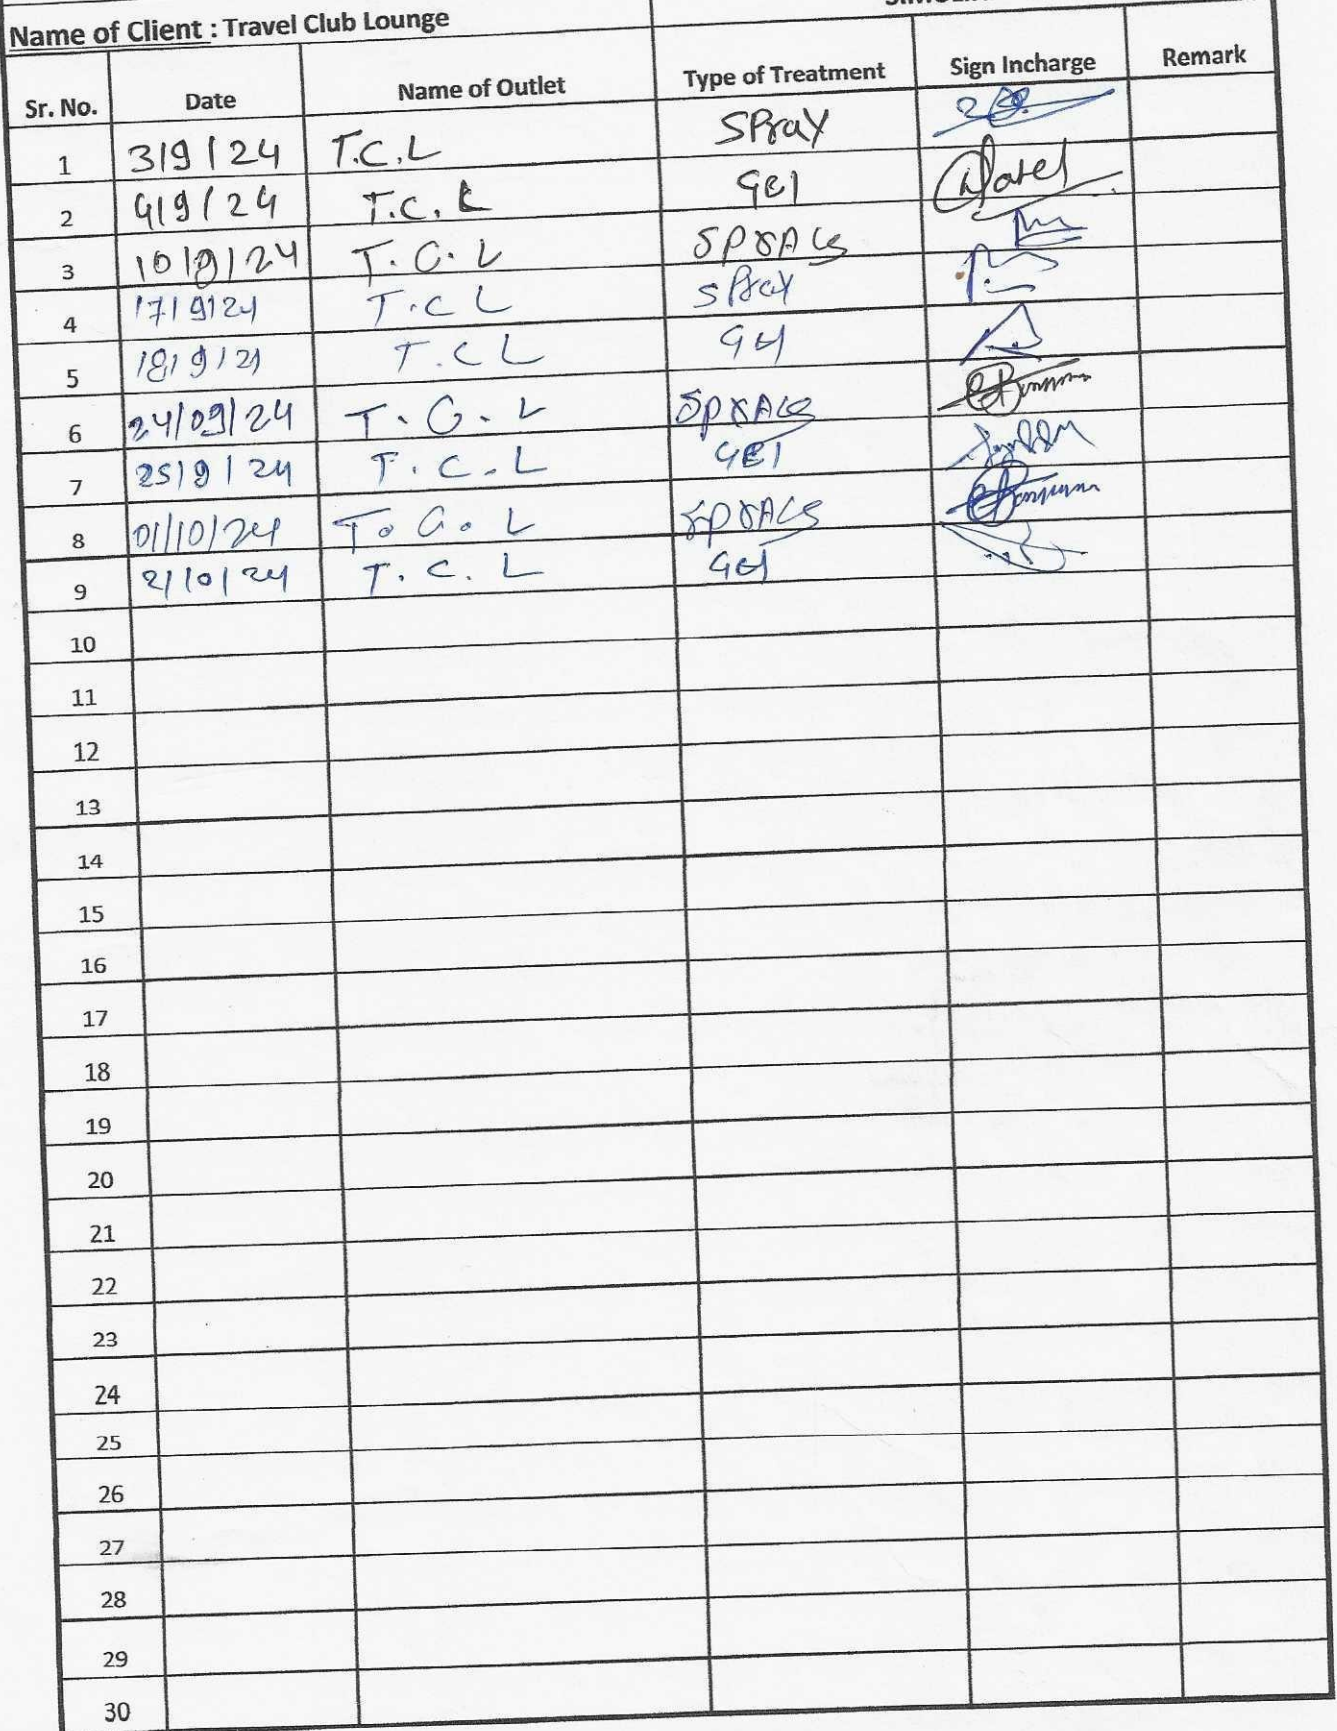 Name of Client : Travel Club Lounge
Sr. No. Date Name of Outlet Type of Treatment Sign Incharge Remark
1 3/9/24 T.C.L SPray
2 4/9/24 T.C.L GEl
3 10/9/24 T.C.L
4 17/9/24 T.C L SPray
5 18/9/24 T.C L Gel
6 24/09/24 T.C.L
7 25/9/24 T.C.L GEl
8 01/10/24 T.C.L
9 2/10/24 T.C.L Gel
10
11
12
13
14
15
16
17
18
19
20
21
22
23
24
25
26
27
28
29
30